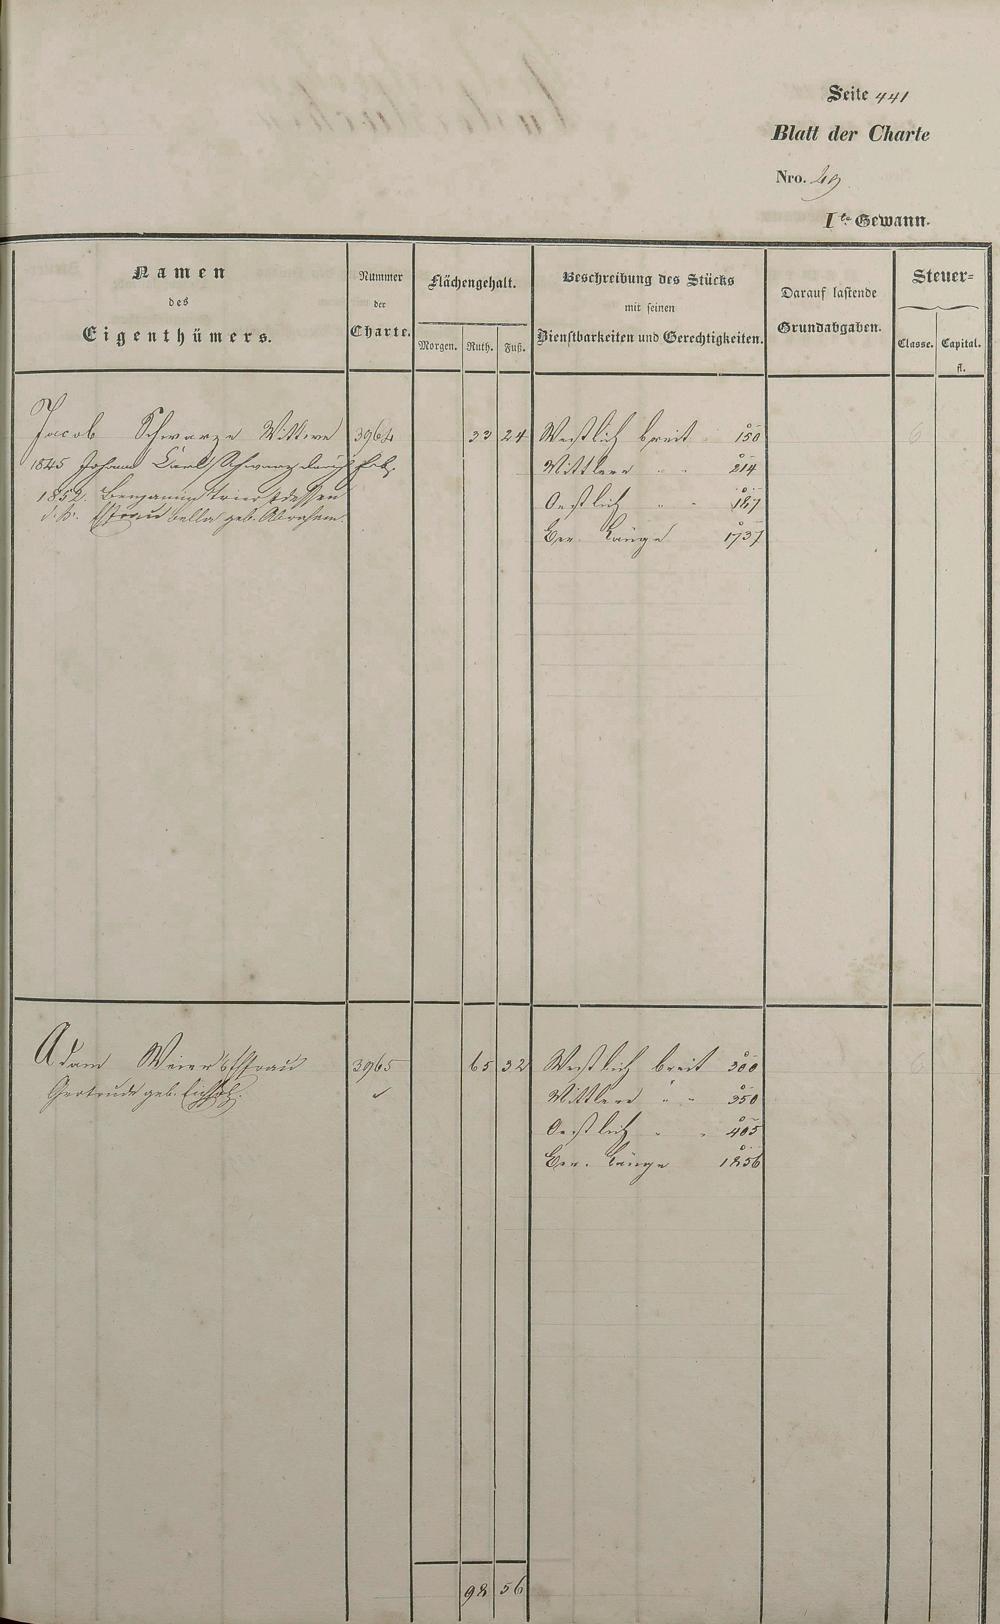 Seite 441
Blatt der Charte
Nro. 29
I te Gewann.
Namen
des
Eigenthümers.
Nummer
der
Charte.
Flächengehalt.
Morgen. Ruth. Fuß.
Beschreibung des Stücks
mit seinen
Dienstbarkeiten und Gerechtigkeiten.
Darauf lastende
Grundabgaben.
Steuer=
Classe. Capital.
fl.
Jacob Schwarze Wittwe 3964 33 24 Westlich breit 150
1845 Johann Carl Schwarz durch Erb. Mittlere " " 214
1852. Benjamin Trier dessen Oestlich " " 187
Ehfrau bella geb. Abraham. Ber. Länge 1737
6
Adam Weiers Ehfrau 3965 65 32 Westlich breit 300
Gertrude geb. Mittlere " " 350
Oestlich " " 405
Ber. Länge 1856
6
98 56